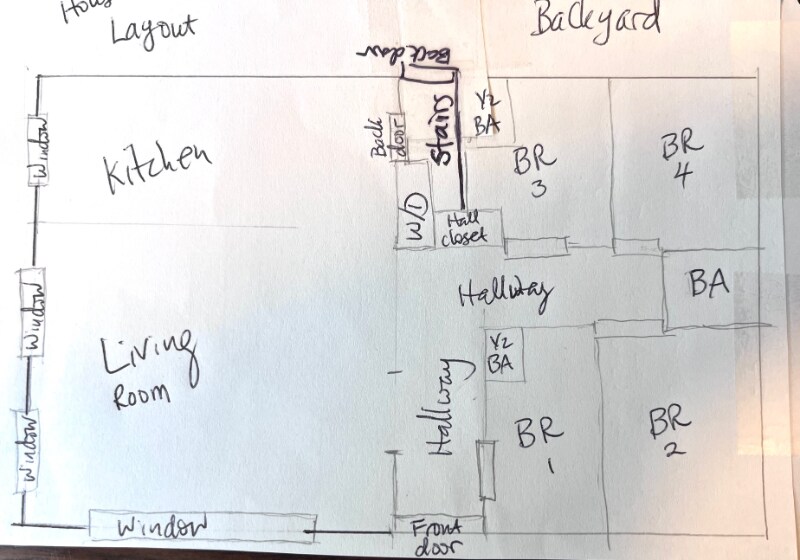 Layout
Backyard
Back door
Window
Kitchen
Back
door
Stairs
1/2
BA
BR
3
BR
4
W/D
Hall
closet
Hallway
BA
Window
Living
Room
Hallway
1/2
BA
BR
1
BR
2
Window
Window
Front
door